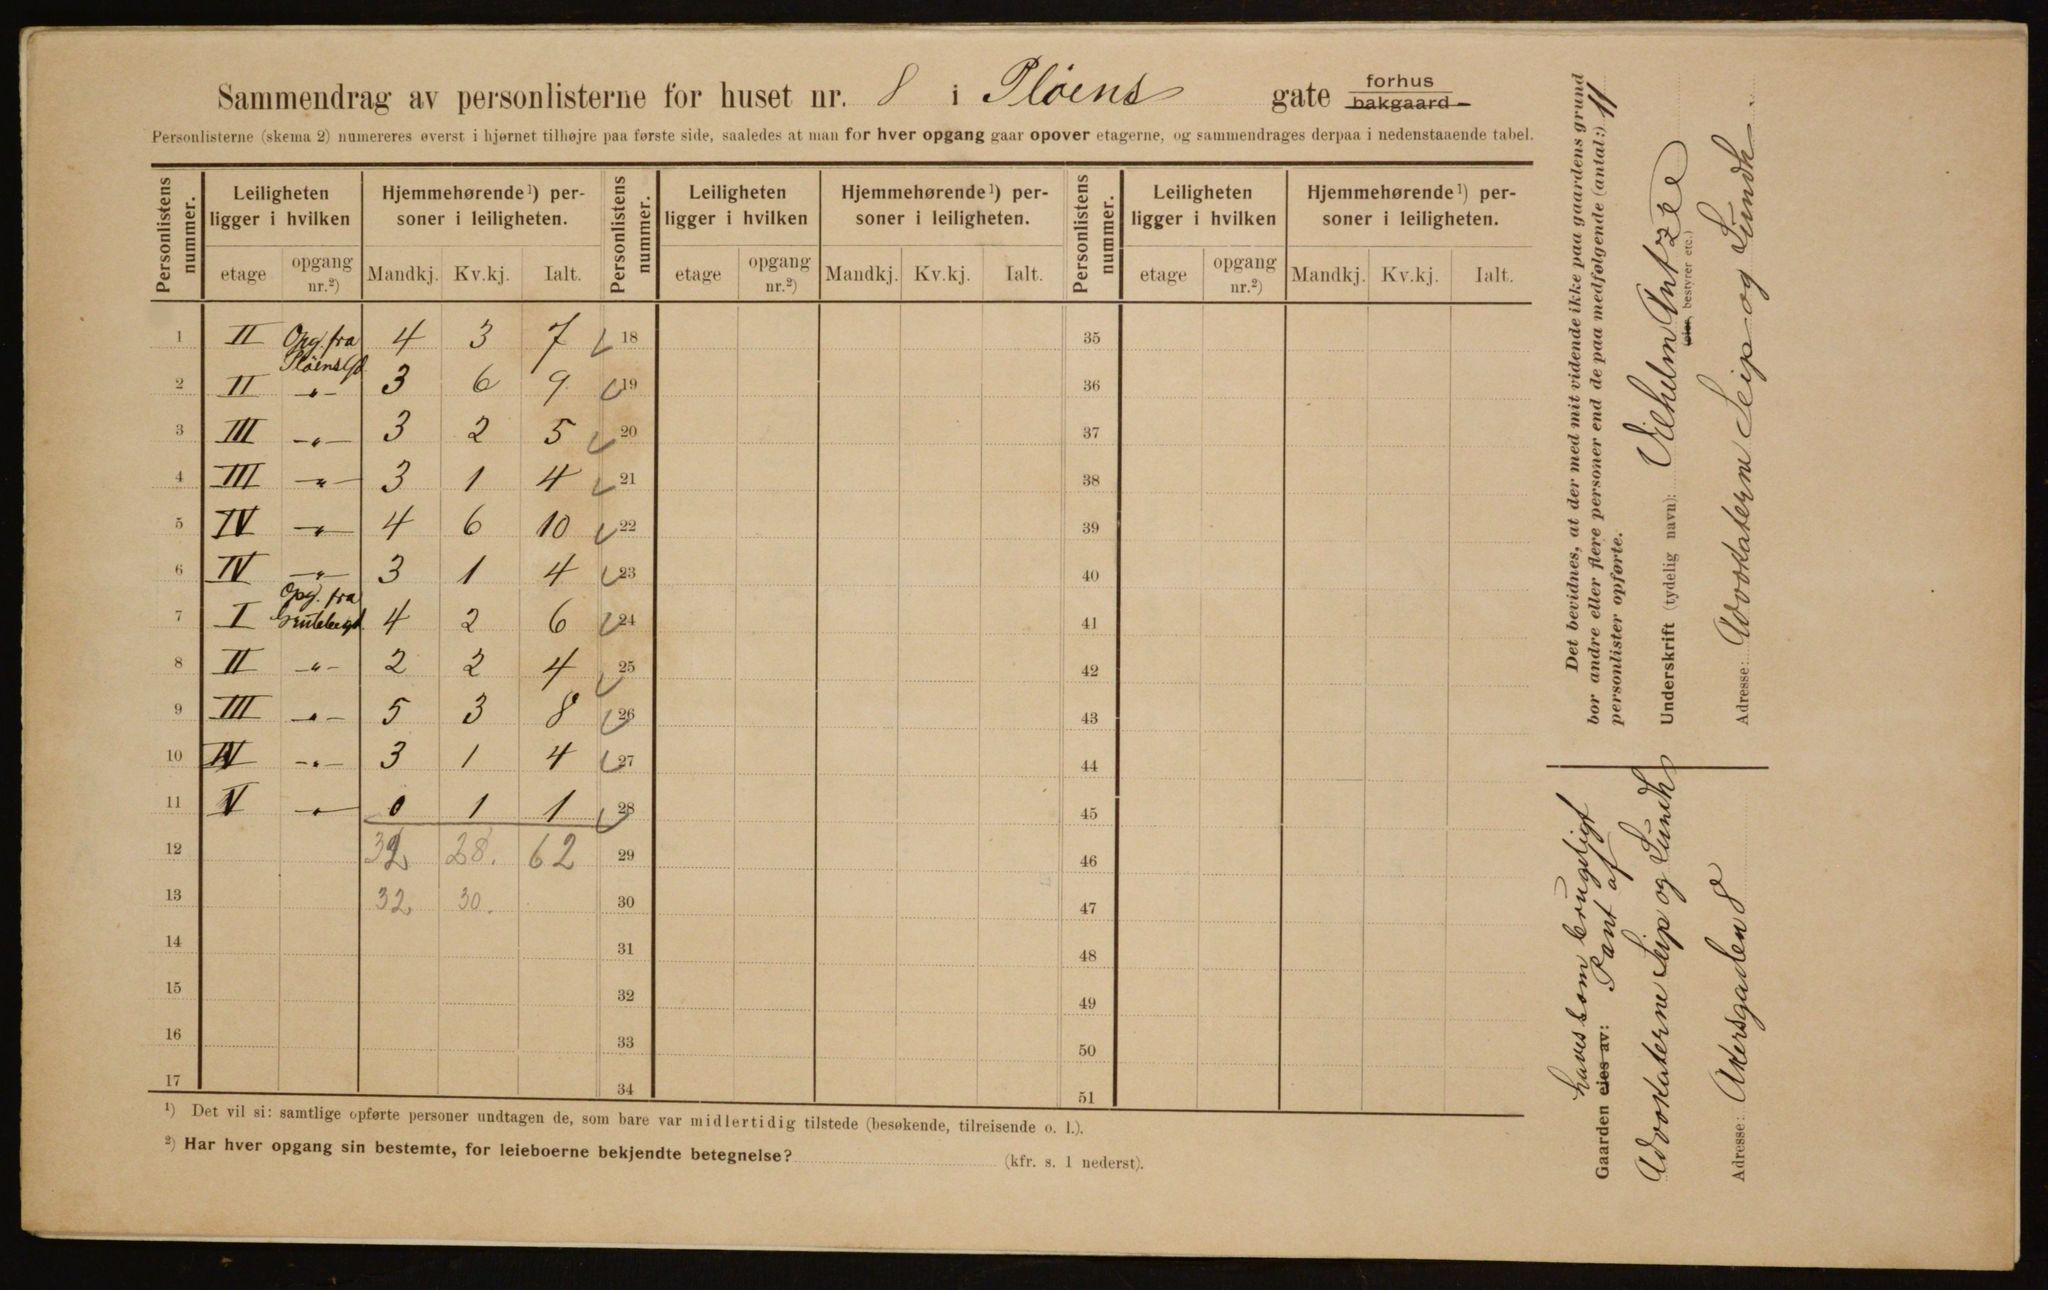 Sammendrag av personlisterne for huset nr. 8 i Pløens gate forhus bakgaard
Personlisterne (skema 2) numereres øverst i hjørnet tilhøjre paa første side, saaledes at man for hver opgang gaar opover etagerne, og sammendrages derpaa i nedenstaaende tabel.
Personlistens nummer. Leiligheten ligger i hvilken Hjemmehørende¹) personer i leiligheten. Personlistens nummer. Leiligheten ligger i hvilken Hjemmehørende¹) personer i leiligheten. Personlistens nummer. Leiligheten ligger i hvilken Hjemmehørende¹) personer i leiligheten.
etage opgang nr.²) Mandkj. Kv.kj. Ialt. etage opgang nr.²) Mandkj. Kv.kj. Ialt. etage opgang nr.²) Mandkj. Kv.kj. Ialt.
1 II Opg. fra Pløensgd. 4 3 7 18 35
2 II -"- 3 6 9 19 36
3 III -"- 3 2 5 20 37
4 III -"- 3 1 4 21 38
5 IV -"- 4 6 10 22 39
6 IV -"- 3 1 4 23 40
7 I Opg. fra 4 2 6 24 41
8 II -"- 2 2 4 25 42
9 III -"- 5 3 8 26 43
10 IV -"- 3 1 4 27 44
11 V -"- 0 1 1 28 45
12 32 28. 62 29 46
13 32 30. 30 47
14 31 48
15 32 49
16 33 50
17 34 51
¹) Det vil si: samtlige opførte personer undtagen de, som bare var midlertidig tilstede (besøkende, tilreisende o. l.).
²) Har hver opgang sin bestemte, for leieboerne bekjendte betegnelse? (kfr. s. 1 nederst).
Det bevidnes, at der med mit vidende ikke paa gaardens grund
bor andre eller flere personer end de paa medfølgende (antal:) 11
personlister opførte.
Underskrift (tydelig navn): Vilhelm Antzée
(eier, bestyrer etc.)
Adresse: Advokaterne Seip og Lundh
haves som brugeligt
Gaarden eies av: Pant af
Advokaterne Seip og Lundh
Adresse: Akersgaden 8